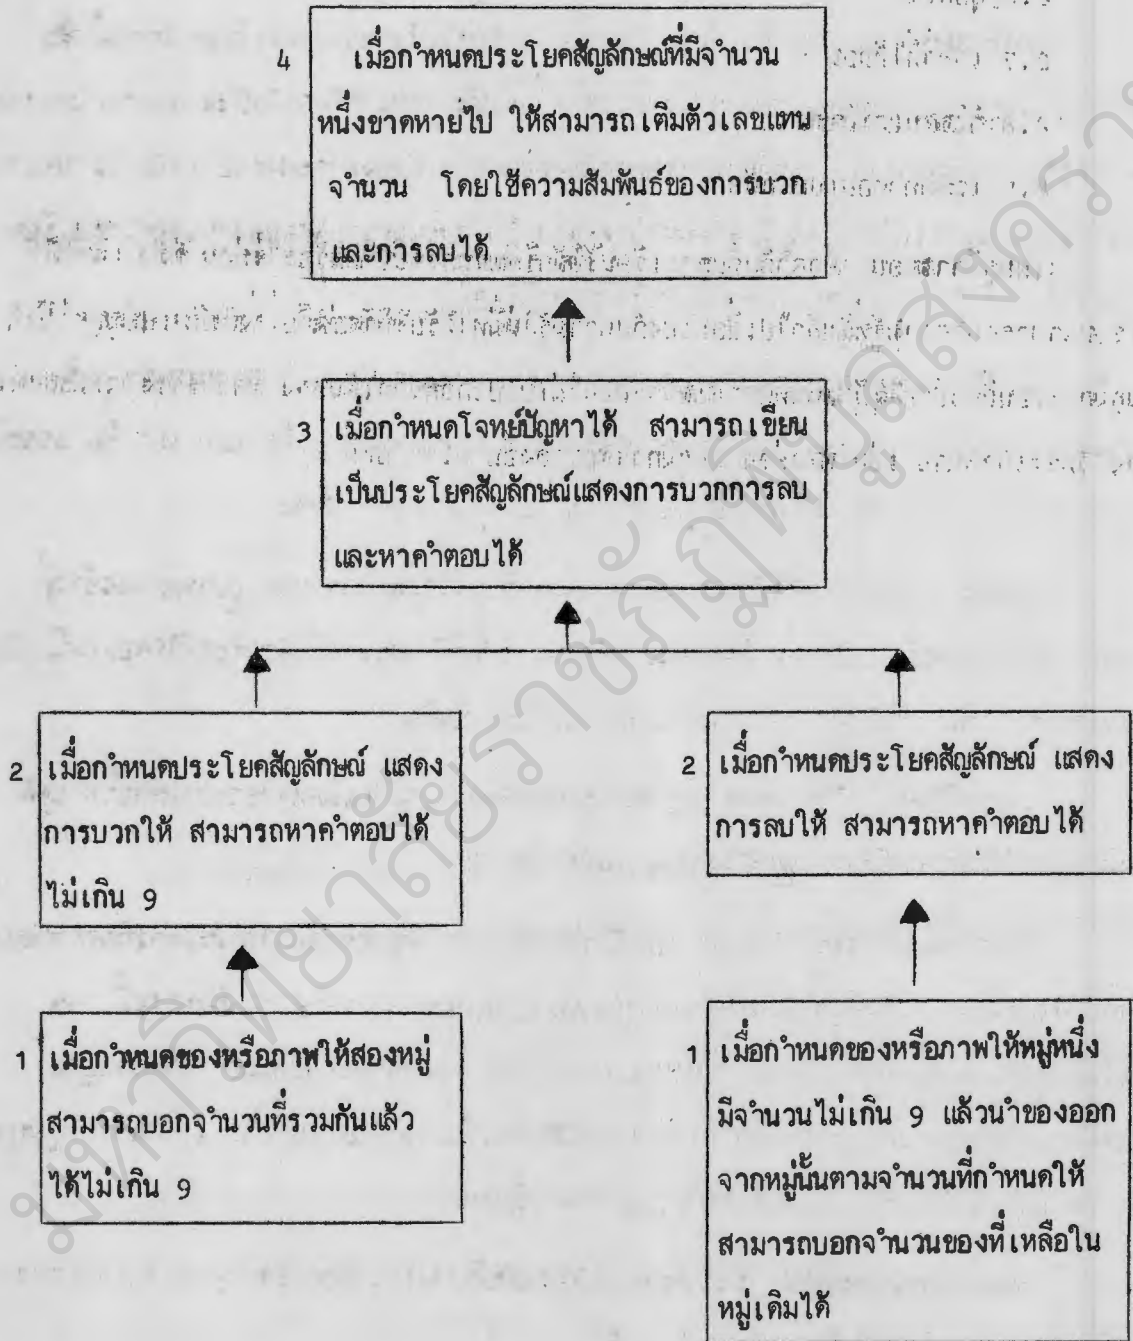 4 เมื่อกำหนดประโยคสัญลักษณ์ที่มีจำนวน
หนึ่งขาดหายไป ให้สามารถเติมตัวเลขแทน
จำนวน โดยใช้ความสัมพันธ์ของการบวก
และการลบได้
3 เมื่อกำหนดโจทย์ปัญหาได้ สามารถเขียน
เป็นประโยคสัญลักษณ์แสดงการบวกการลบ
และหาคำตอบได้
2 เมื่อกำหนดประโยคสัญลักษณ์ แสดง
การบวกให้ สามารถหาคำตอบได้
ไม่เกิน 9
2 เมื่อกำหนดประโยคสัญลักษณ์ แสดง
การลบให้ สามารถหาคำตอบได้
1 เมื่อกำหนดของหรือภาพให้สองหมู่
สามารถบอกจำนวนที่รวมกันแล้ว
ได้ไม่เกิน 9
1 เมื่อกำหนดของหรือภาพให้หมู่หนึ่ง
มีจำนวนไม่เกิน 9 แล้วนำของออก
จากหมู่นั้นตามจำนวนที่กำหนดให้
สามารถบอกจำนวนของที่เหลือใน
หมู่เดิมได้
มหาวิทยาลัยราชภัฏพิบูลสงคราม